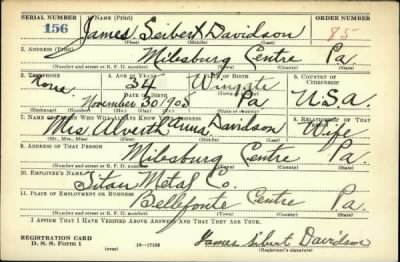 SERIAL NUMBER 1. NAME (Print) ORDER NUMBER
156 James Seibert Davidson 85
(First) (Middle) (Last)
2. ADDRESS (Print)
Milesburg Centre Pa.
(Number and street or R. F. D. number) (Town) (County) (State)
3. TELEPHONE 4. AGE IN YEARS 5. PLACE OF BIRTH 6. COUNTRY OF CITIZENSHIP
None 34 Wingate
DATE OF BIRTH
November 30 1905 Pa U.S.a.
(Exchange) (Number) (Mo.) (Day) (Yr.) (State or country)
7. NAME OF PERSON WHO WILL ALWAYS KNOW YOUR ADDRESS 8. RELATIONSHIP OF THAT PERSON
Mrs. Alverth anna Davidson Wife
(Mr., Mrs., Miss) (First) (Middle) (Last)
9. ADDRESS OF THAT PERSON
Milesburg Centre Pa.
(Number and street or R. F. D. number) (Town) (County) (State)
10. EMPLOYER'S NAME
Titan Metal Co.
11. PLACE OF EMPLOYMENT OR BUSINESS
Bellefonte Centre Pa.
(Number and street or R. F. D. number) (Town) (County) (State)
I AFFIRM THAT I HAVE VERIFIED ABOVE ANSWERS AND THAT THEY ARE TRUE.
REGISTRATION CARD
D. S. S. FORM 1 (over) 16—17105 James Sibert Davidson
(Registrant's signature)